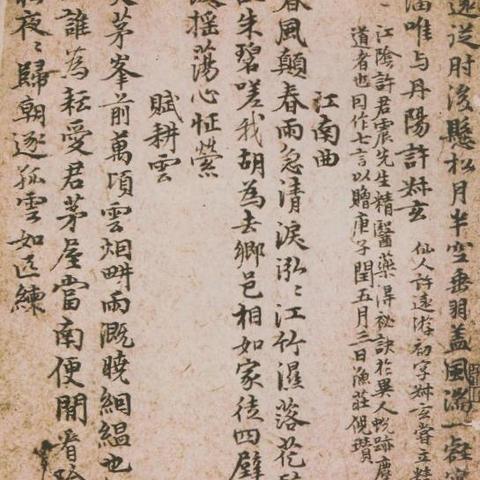 遠從肘後懸松月半空垂羽蓋風滿一壑
唯与丹陽許叔玄
仙人許遠游初字叔玄嘗立精
江陰許君震先生精醫藥得祕訣於異人蛻跡塵
道者也因作七言以贈庚子閏五月三日漁莊倪瓚
江南曲
春風顛春雨急清淚泓〻江竹濕落花
朱碧嗟我胡為去鄉邑相如家徒四壁
搖蕩心怔營
賦耕雲
茅峯前萬頃雲烟畊雨溉曉絪縕也
誰為耘愛君茅屋當南便閒看
夜〻歸朝逐孤雲如匹練